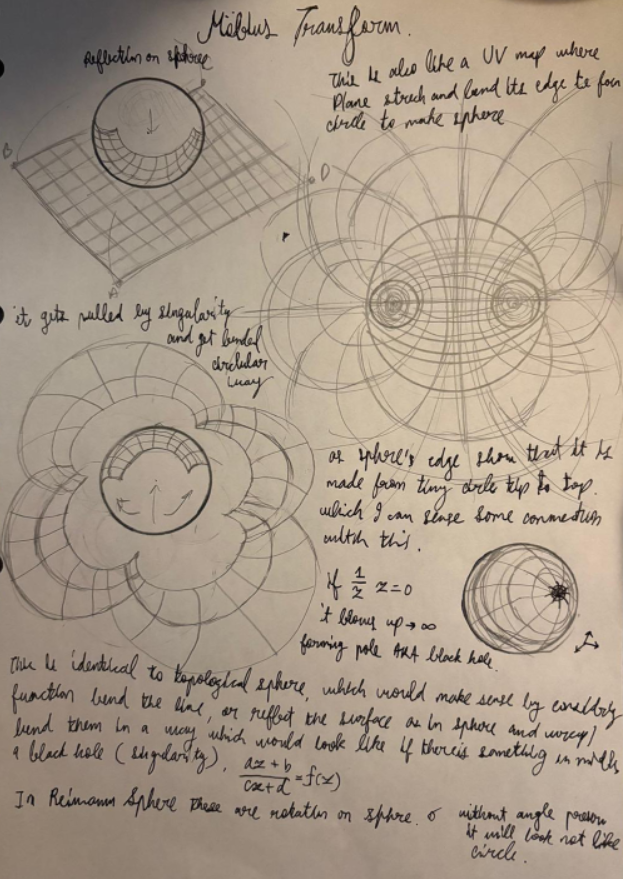 Möbius Transform.
Reflection on sphere
This is also like a UV map where
Plane strech and bend its edge to form
circle to make sphere
B
D
A
it gets pulled by singularity
and get bended
circlular
way
as sphere's edge show that it is
made from tiny circle tip to top.
which I can sense some connection
with this.
if 1/z z=0
it blows up → ∞
forming pole AKA black hole.
This is identical to topological sphere, which would make sense by
function bend the line, or reflect the surface as in sphere and
bend them in a way which would look like if there is something in middle
a black hole (singularity),
az + b / cz + d = f(z)
In Reimann Sphere these are rotation on sphere.
without angle
it will look not like
circle.